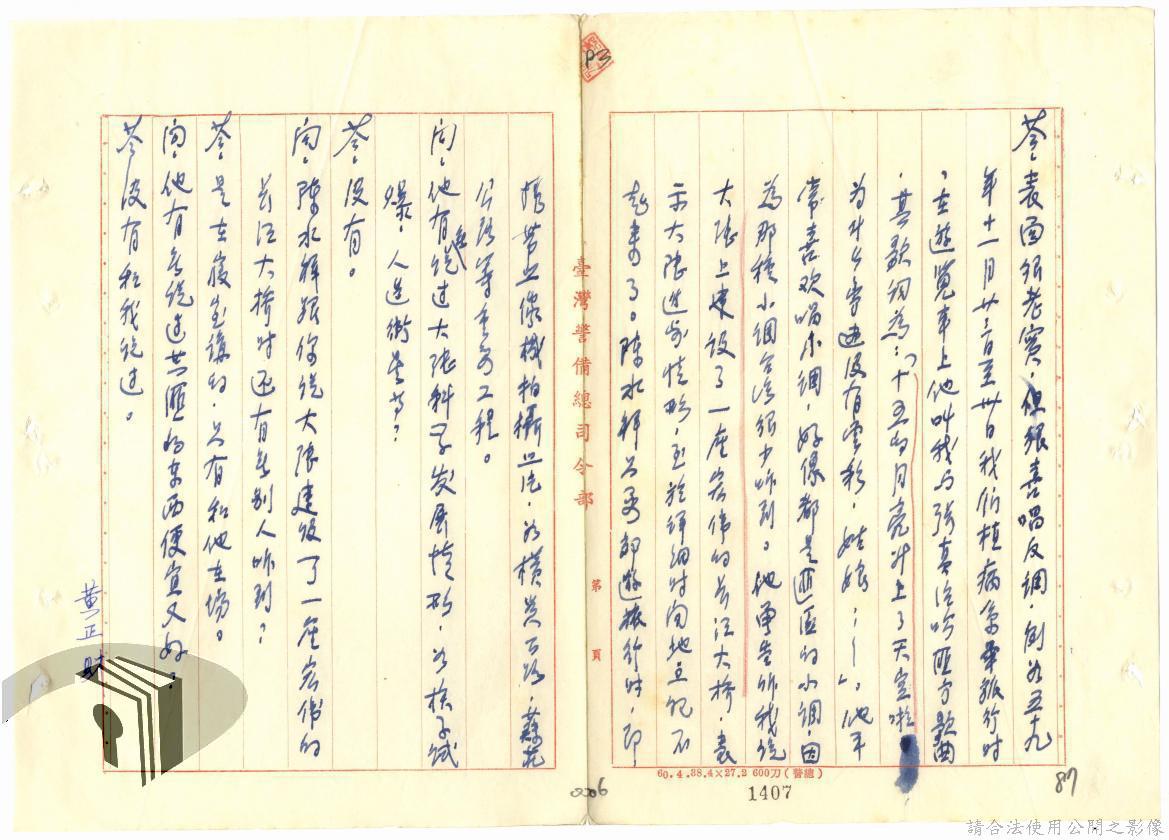 答。表面很老實，但很喜唱反調，例如五十九
年十一月廿三日至卅日我們植病系畢旅行時
，在遊覽車上他叫我与張真治唱匪方歌曲
，其歌詞為：「十五的月亮升上了天空啦
為什么旁边沒有雲彩，姑娘；……」。他平
常喜欢唱小調，好像都是匪區的小調，因
為那種小調台湾很少听到。他曾告訴我說
大陸上建設了一座宏偉的長江大橋，表
示大陸進步情形，至於詳細时间地点記不
起來了。陳水 为 部遊旅行时，即
攜帶照像機拍攝照片，如橫貫公路，蘇花
公路等重要工程。
问，他有無說过大陸科学发展情形，如核子試
爆，人造衛星等？
答，沒有。
问，陳水 跟你說大陸建设了一座宏偉的
長江大橋时还有無別人听到？
答，是在寢室講的，只有和他在場。
问，他有無說过共匪的東西便宜又好？
答，沒有和我說过。
黃正財
臺灣警備總司令部
第 頁
60.4.38.4×27.2 600刀(警總)
1407
87
206
P3
請合法使用公開之影像